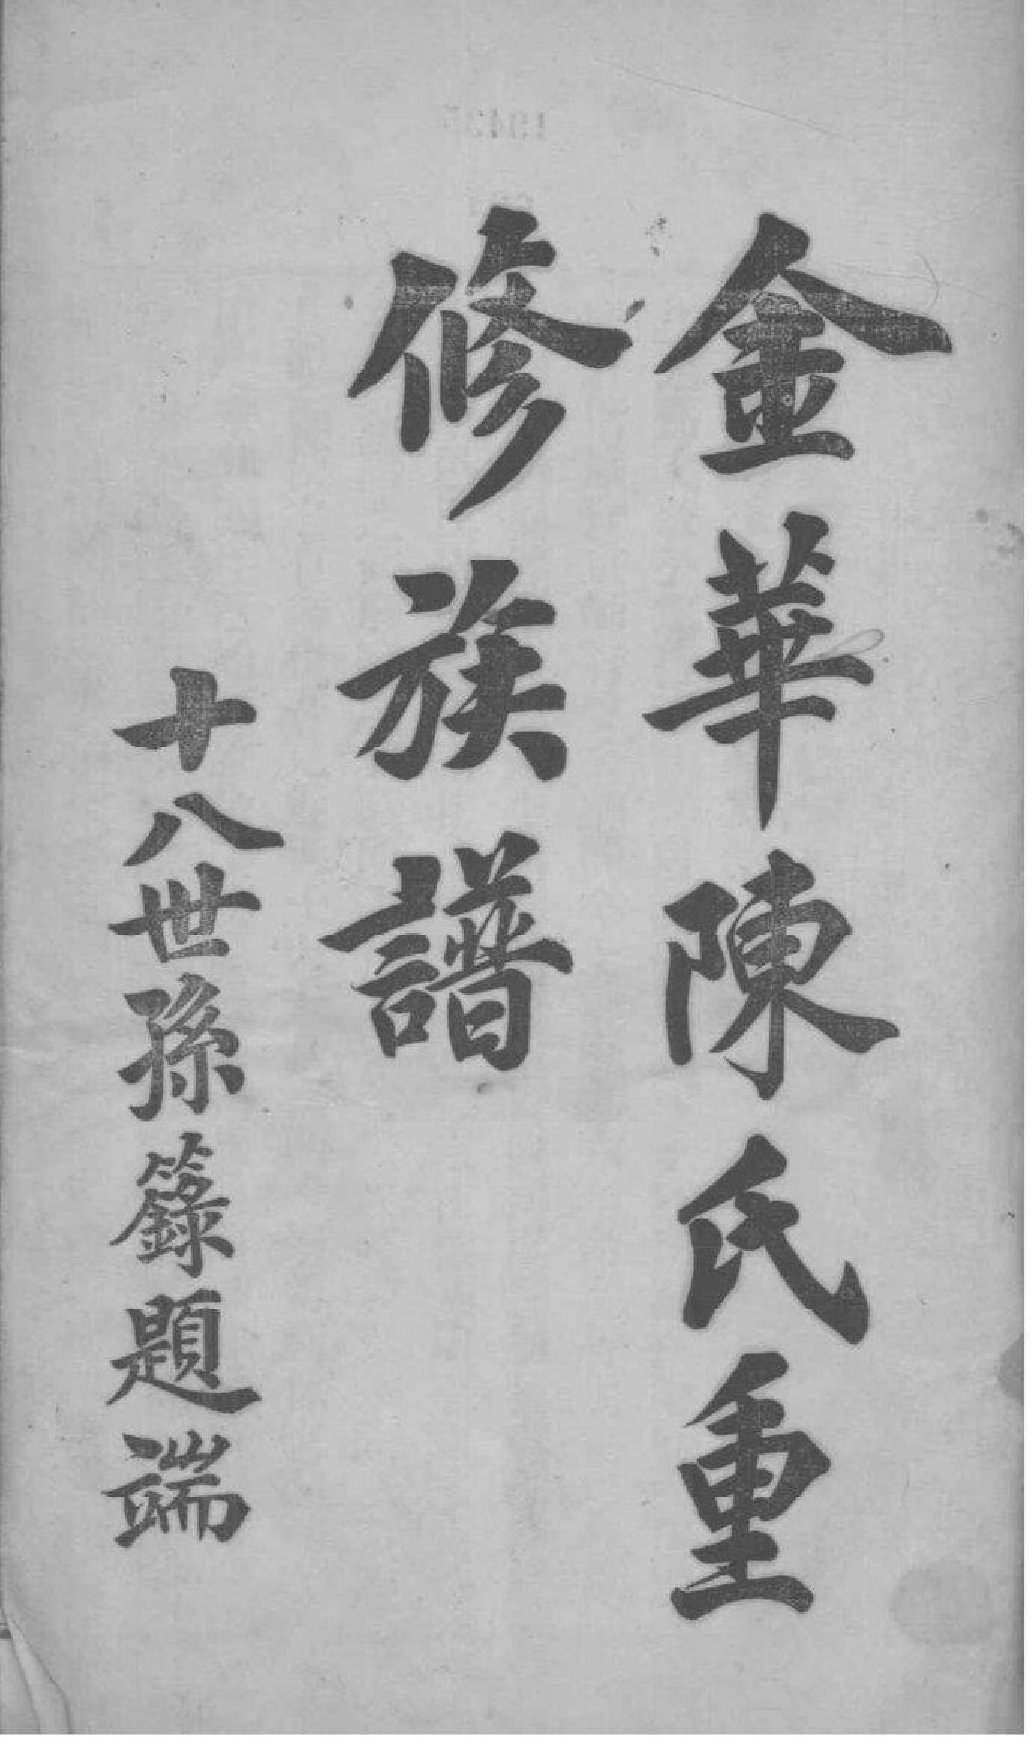 金華陳氏重
修族譜
十八世孫籙題端